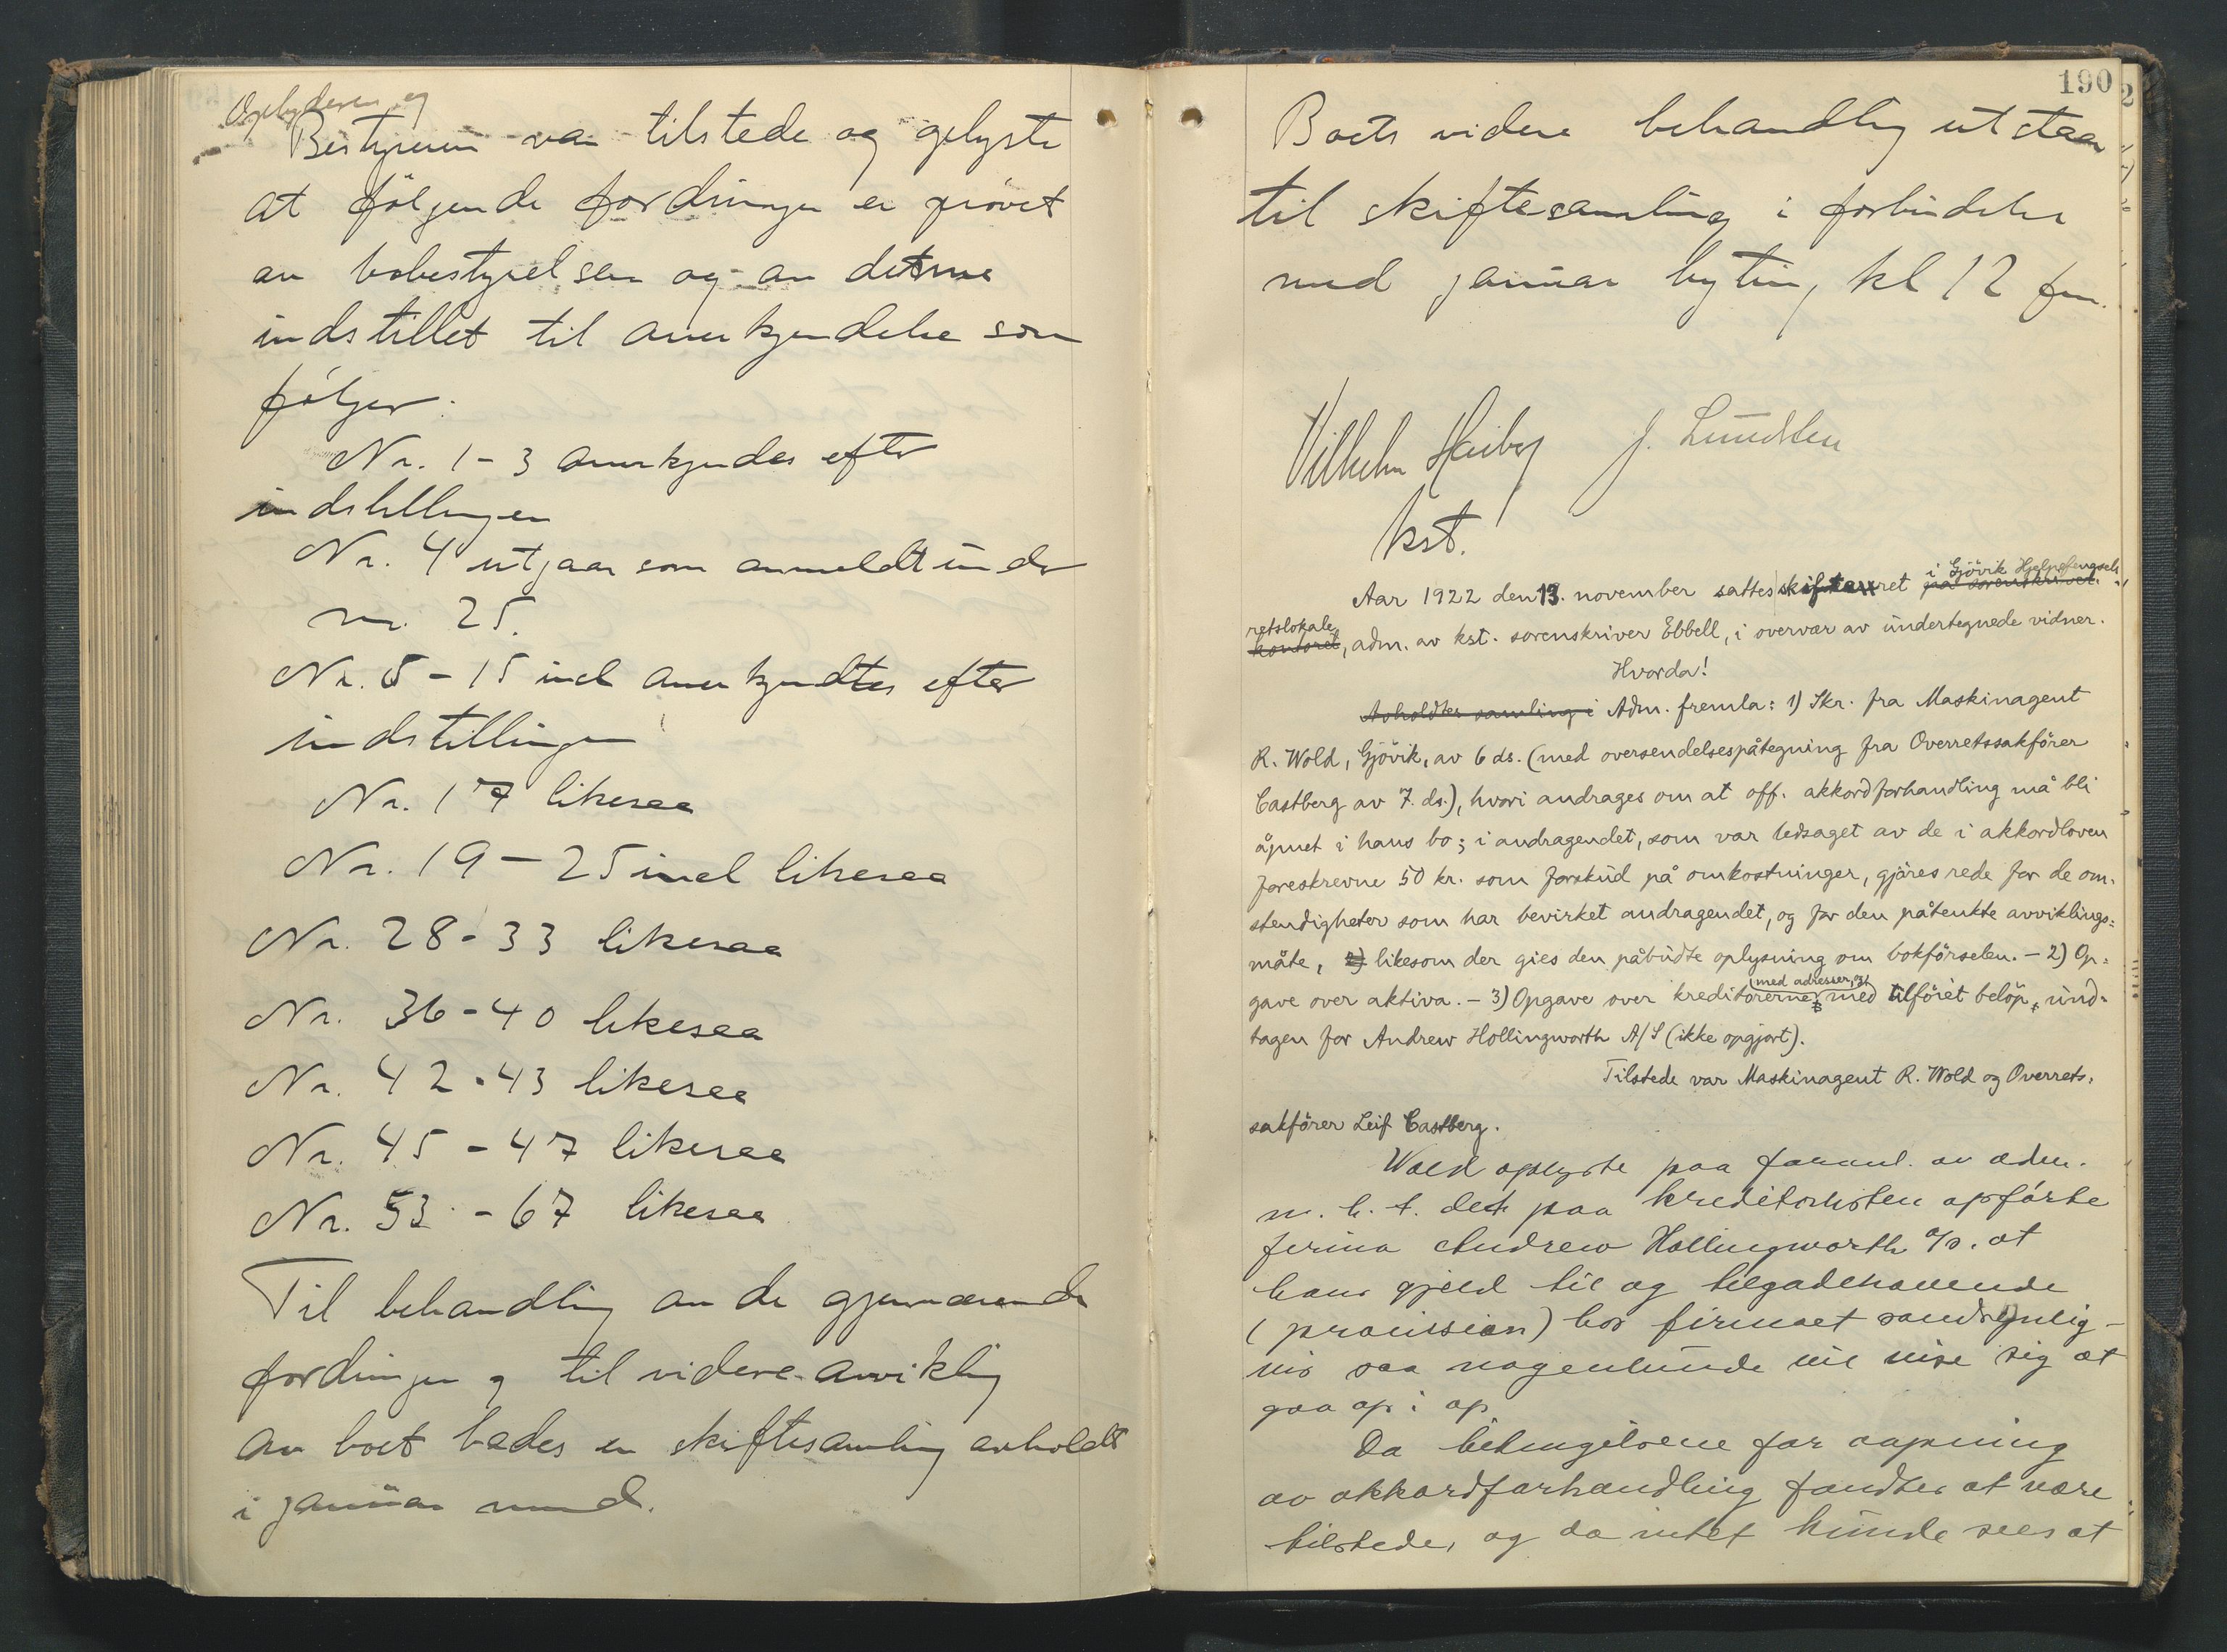 Opbyderen og
Bestyreren var tilstede og oplyste
at følgende fordringer er prøvet
av bobestyrelsen og av denne
indstillet til anerkjendelse som
følger:
Nr. 1-3 anerkjendes efter
indstillingen
Nr. 4 utgaar som anmeldt under
nr. 25.
Nr. 5-15 incl anerkjendtes efter
indstillingen
Nr. 17 likesaa
Nr. 19-25 incl likesaa
Nr. 28-33 likesaa
Nr. 36-40 likesaa
Nr. 42-43 likesaa
Nr. 45-47 likesaa
Nr. 53-67 likesaa
Til behandling av de gjenværende
fordringer og til videre avvikling
av boet bedes en skiftesamling avholdt
i januar mned.
190
Boets videre behandling utstaar
til skiftesamling i forbindelse
med januar bytin, kl 12 fm.
Vilhelm Heiberg J. Lundsten
kst.
i Gjövik Hjelpefengsels
Aar 1922 den 13. november sattes skifteret paa sorenskriver-
retslokale
kontoret, adm. av kst. sorenskriver Ebbell, i overvær av undertegnede vidner.
Hvorda!
Avholdtes samling i Adm. fremla: 1) Skr. fra Maskinagent
R. Wold, Gjövik, av 6 ds. (med oversendelsespåtegning fra Overretssakförer
Castberg av 7. ds.), hvori andrages om at off. akkordforhandling må bli
åpnet i hans bo; i andragendet, som var ledsaget av de i akkordloven
foreskrevne 50 kr. som forskud på omkostninger, gjöres rede for de om-
stendigheter som har bevirket andragendet, og for den påtenkte avviklings-
måte, 2) likesom der gies den påbudte oplysning om bokförselen. - 2) Op-
med adresser, og
gave over aktiva. - 3) Opgave over kreditorerne med tilföiet belöp, und-
tagen for Andrew Hollingworth A/S (ikke opgjort).
Tilstede var Maskinagent R. Wold og Overrets-
sakförer Leif Castberg.
Wold oplyste paa foranl. av adm.
m. h. t. det paa kreditorlisten opförte
firma Andrew Hollingworth A/S. at
hans gjeld til og tilgodehavende
(provision) hos firmaet sandsynlig-
vis saa nogenlunde vil vise sig at
gaa op i op
Da betingelsene for aapning
av akkordforhandling fandtes at være
tilstede, og da intet kunde sees at